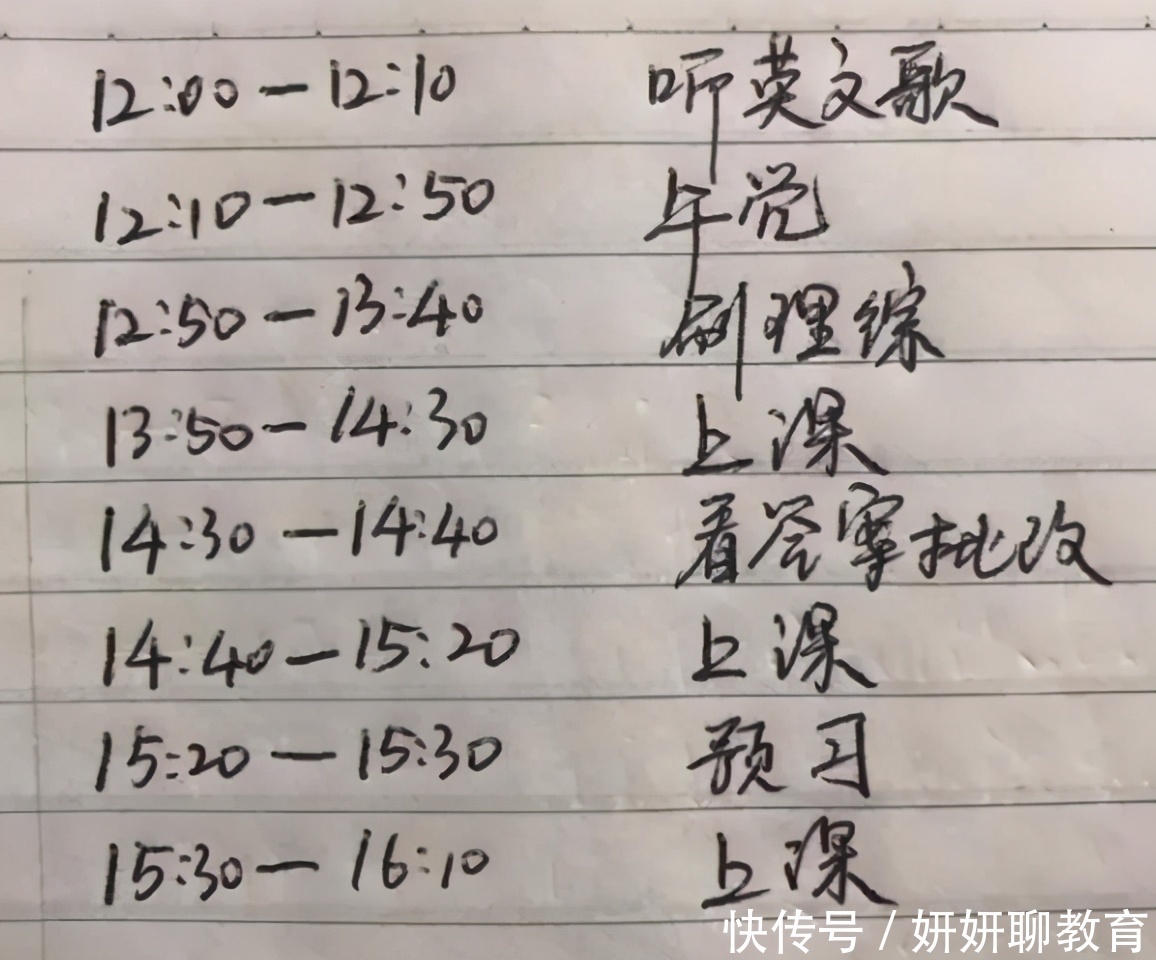 12:00—12:10 听英文歌
12:10—12:50 午觉
12:50—13:40 刷理综
13:50—14:30 上课
14:30—14:40 看答案批改
14:40—15:20 上课
15:20—15:30 预习
15:30—16:10 上课
快传号 / 妍妍聊教育